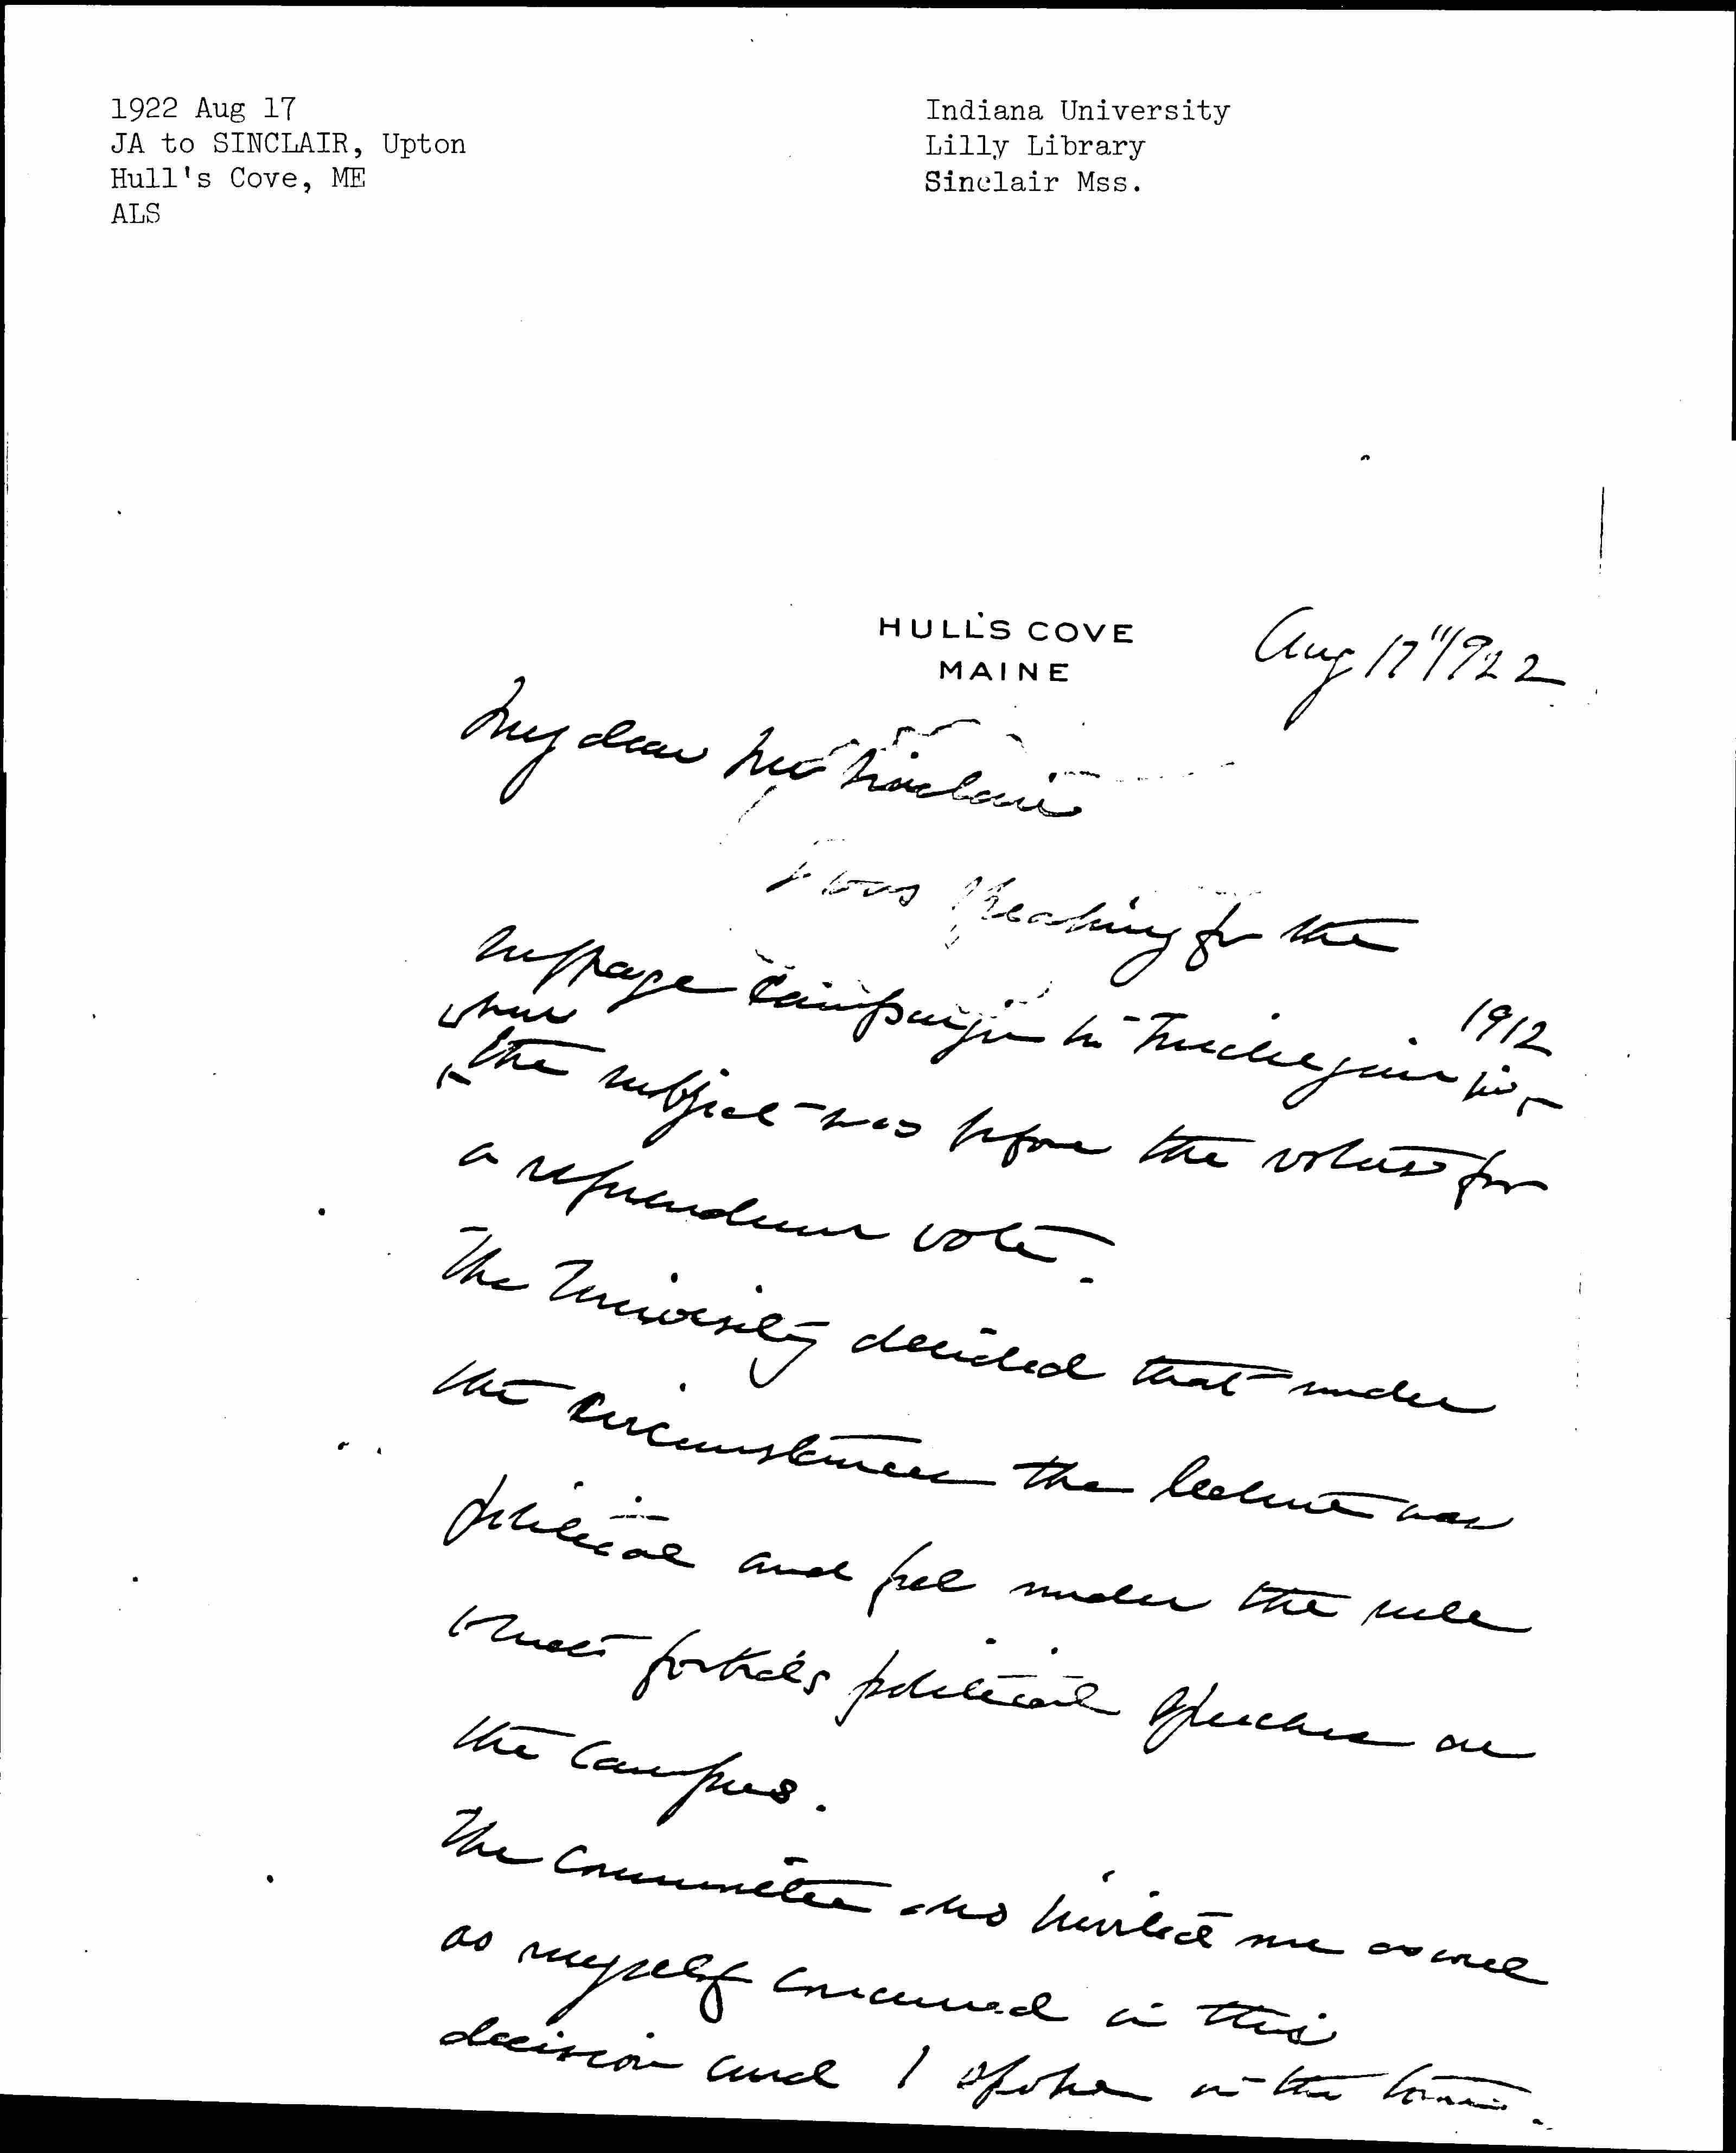 1922 Aug 17
JA to SINCLAIR, Upton
Hull's Cove, ME
ALS
Indiana University
Lilly Library
Sinclair Mss.
HULL'S COVE
MAINE
Aug 17" 1922
My dear Mr Sinclair
I was speaking for the
suffrage campaign in Michigan in 1912
when
the subject was before the voters for
a referendum vote.
The University decided that under
the circumstances the lecture was
political and fell under the rule
forbids political speeches on
the campus.
The Committee who invited me as well
as myself concurred in this
decision and I spoke in the town.